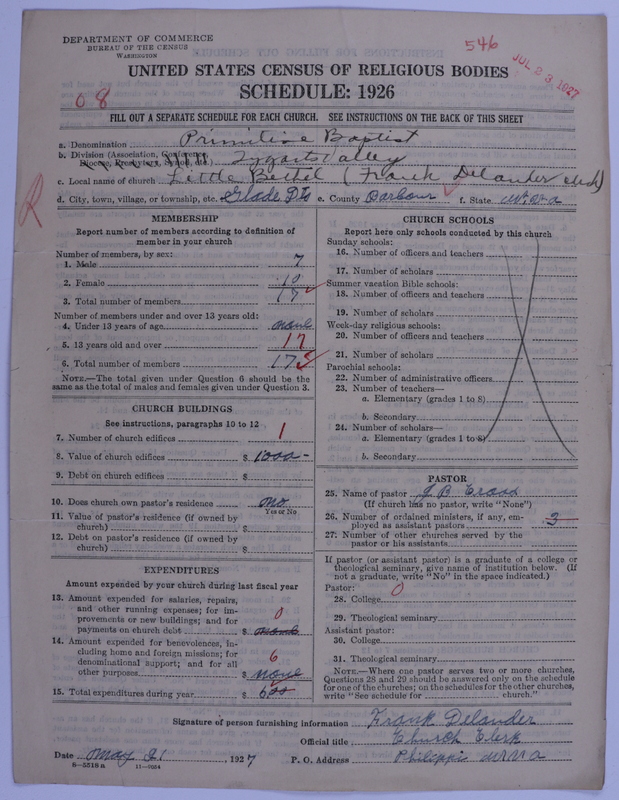 DEPARTMENT OF COMMERCE
BUREAU OF THE CENSUS
WASHINGTON
546
JUL 23 1927
UNITED STATES CENSUS OF RELIGIOUS BODIES
SCHEDULE: 1926
08
FILL OUT A SEPARATE SCHEDULE FOR EACH CHURCH. SEE INSTRUCTIONS ON THE BACK OF THIS SHEET
a. Denomination Primitive Baptist
b. Division (Association, Conference,
Diocese, Presbytery, Synod, etc.)
c. Local name of church Little Bethel (Frank Delander clerk)
R
d. City, town, village, or township, etc. Glade e. County Barbour f. State W Va
MEMBERSHIP
Report number of members according to definition of
member in your church
Number of members, by sex:
1. Male 7
2. Female 10
3. Total number of members 17
Number of members under and over 13 years old:
4. Under 13 years of age none
5. 13 years old and over 17
6. Total number of members 17
NOTE.—The total given under Question 6 should be the
same as the total of males and females given under Question 3.
CHURCH BUILDINGS
See instructions, paragraphs 10 to 12
7. Number of church edifices 1
8. Value of church edifices $ 1000-
9. Debt on church edifices $
10. Does church own pastor's residence no
Yes or No
11. Value of pastor's residence (if owned by
church) $
12. Debt on pastor's residence (if owned by
church) $
EXPENDITURES
Amount expended by your church during last fiscal year
13. Amount expended for salaries, repairs,
and other running expenses; for im-
provements or new buildings; and for
payments on church debt $ none 0
14. Amount expended for benevolences, in-
cluding home and foreign missions; for
denominational support; and for all
other purposes $ none 6
15. Total expenditures during year $ 600
CHURCH SCHOOLS
Report here only schools conducted by this church
Sunday schools:
16. Number of officers and teachers
17. Number of scholars
Summer vacation Bible schools:
18. Number of officers and teachers
19. Number of scholars
Week-day religious schools:
20. Number of officers and teachers
21. Number of scholars
Parochial schools:
22. Number of administrative officers
23. Number of teachers—
a. Elementary (grades 1 to 8)
b. Secondary
24. Number of scholars—
a. Elementary (grades 1 to 8)
b. Secondary
PASTOR
25. Name of pastor J B
(If church has no pastor, write "None")
26. Number of ordained ministers, if any, em-
ployed as assistant pastors
27. Number of other churches served by the
pastor or his assistants
If pastor (or assistant pastor) is a graduate of a college or
theological seminary, give name of institution below. (If
not a graduate, write "No" in the space indicated.)
Pastor: 0
28. College
29. Theological seminary
Assistant pastor:
30. College
31. Theological seminary
NOTE.—Where one pastor serves two or more churches,
Questions 28 and 29 should be answered only on the schedule
for one of the churches; on the schedules for the other churches,
write "See schedule for church."
Signature of person furnishing information Frank Delander
Official title Church Clerk
Date May 21, 1927 P. O. Address Philippi W Va
8-5518a 11-9054